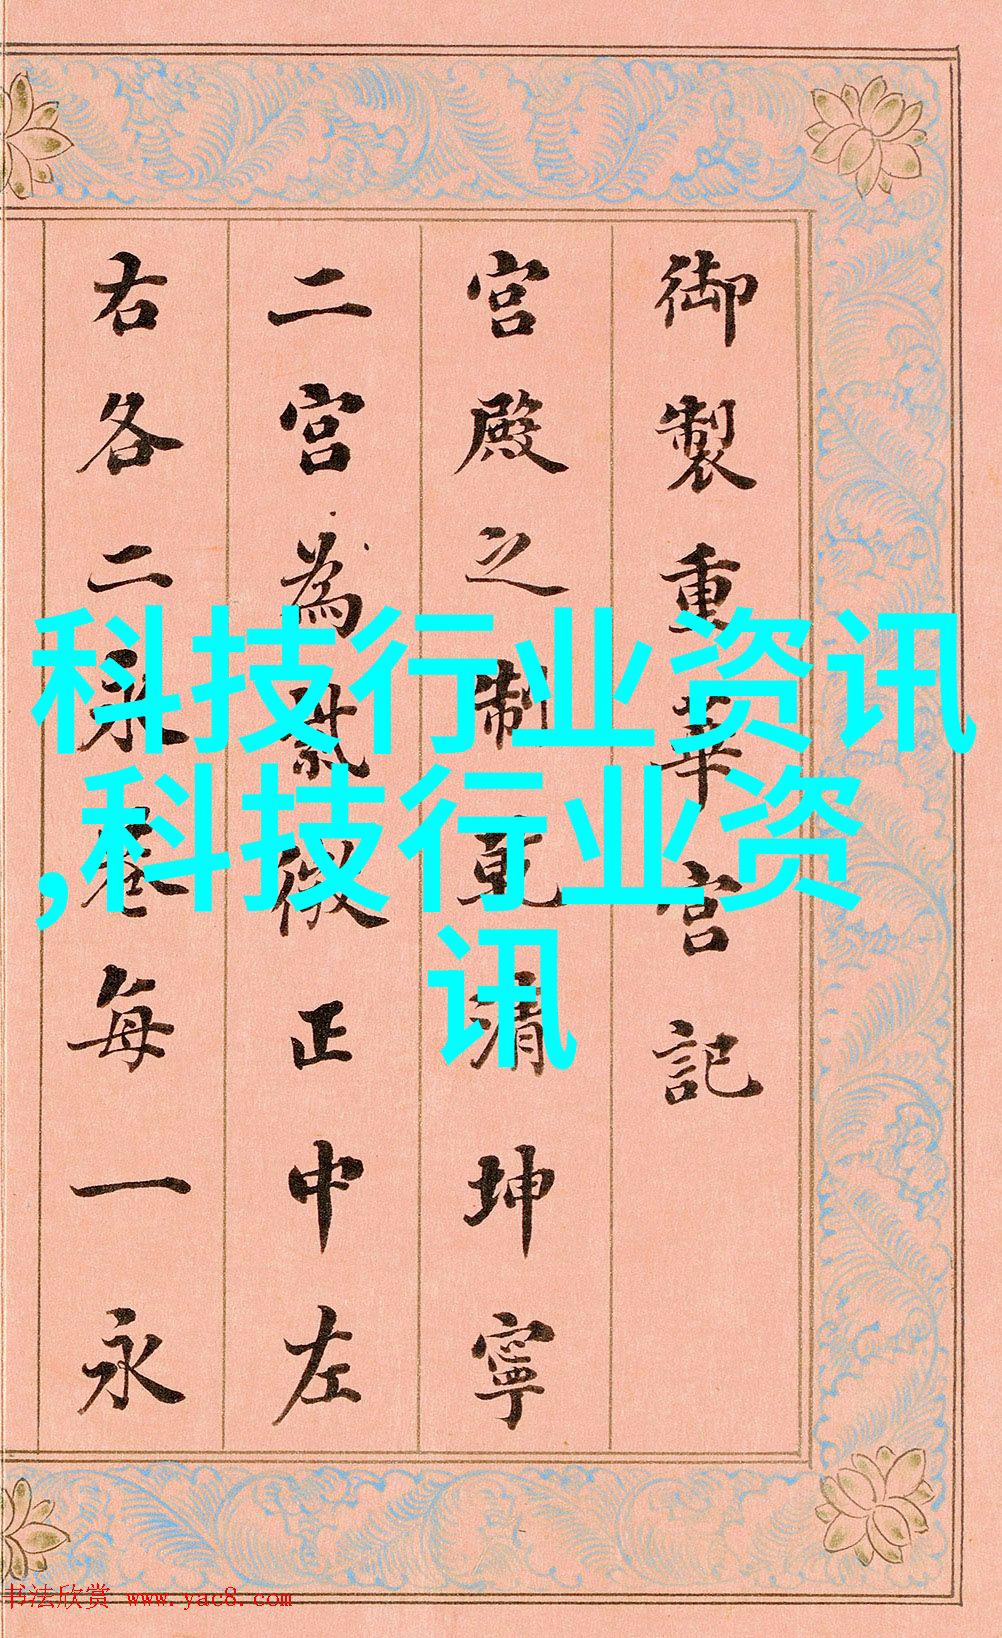 御製重華宮記
宮殿之制乾清坤寧
二宮為紫微正中左
右各二永巷每一永
科技行业资讯
,科技行业资
讯
书法欣赏 www.yac8.com